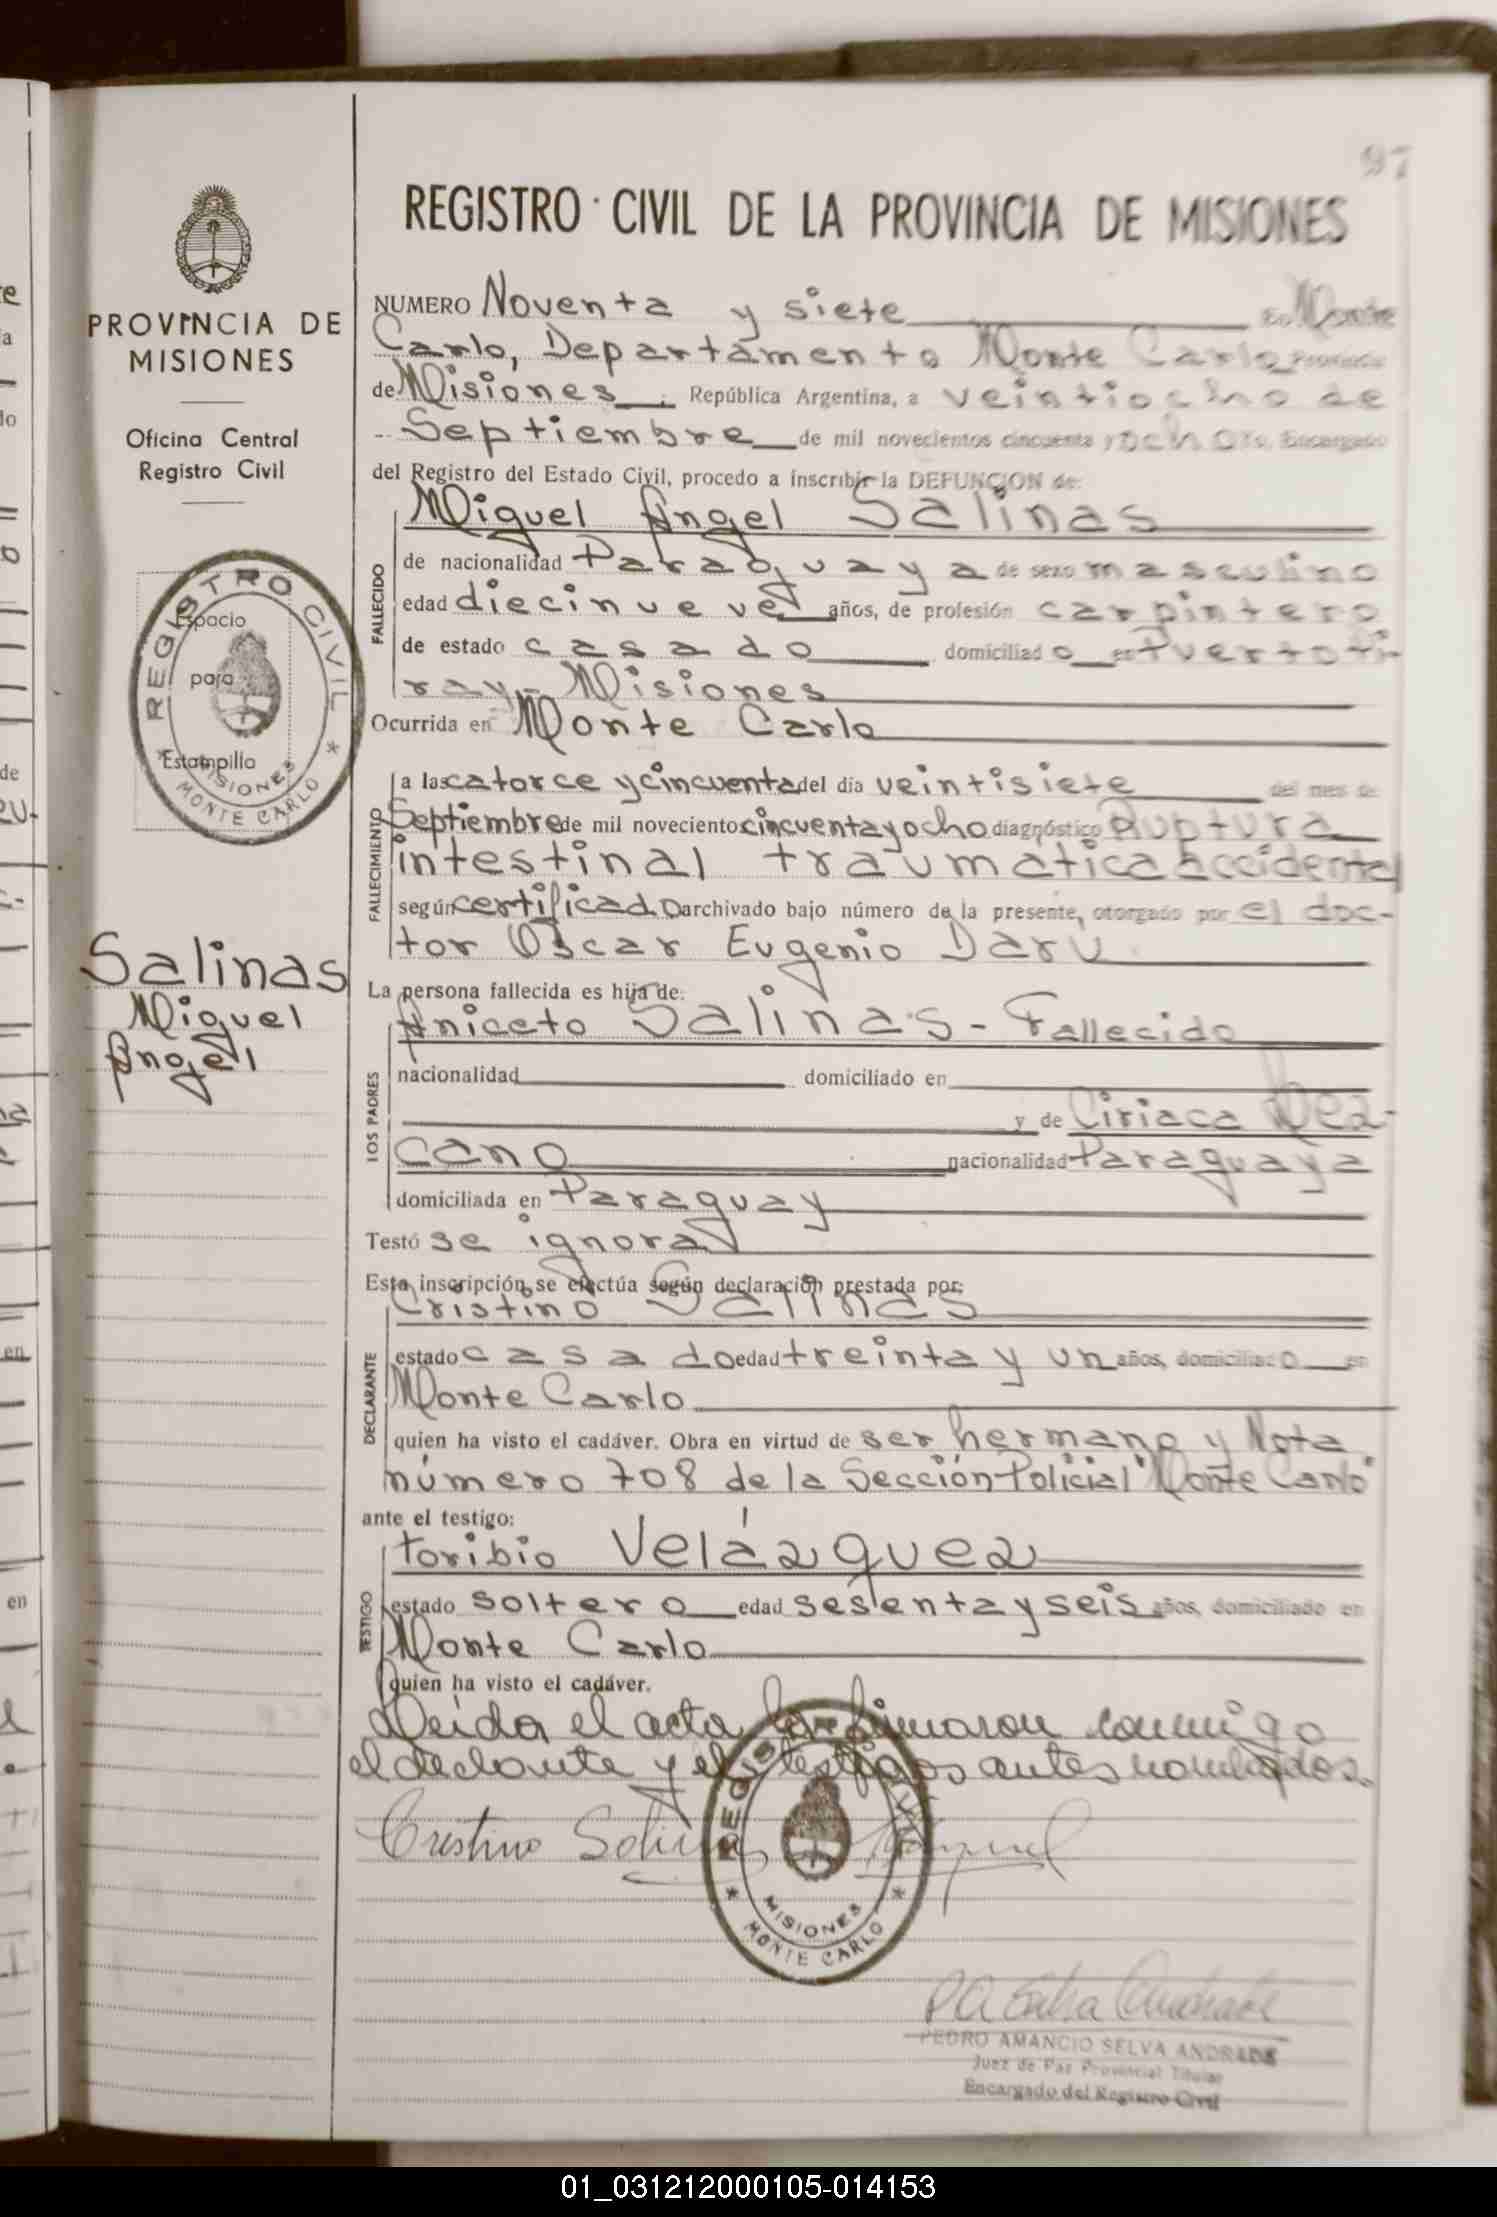 97
REGISTRO CIVIL DE LA PROVINCIA DE MISIONES
PROVINCIA DE
MISIONES
Oficina Central
Registro Civil
REGISTRO CIVIL
Espacio
para
Estampilla
MISIONES
MONTE CARLO
Salinas
Miguel
Angel
NUMERO Noventa y siete En Monte
Carlo, Departamento Monte Carlo Provincia
de Misiones República Argentina, a veintiocho de
Septiembre de mil novecientos cincuenta y ocho Yo, Encargado
del Registro del Estado Civil, procedo a inscribir la DEFUNCION de:
Miguel Angel Salinas
FALLECIDO
de nacionalidad Paraguaya de sexo masculino
edad diecinueve años, de profesión carpintero
de estado casado domiciliado en Puerto Pi-
ray - Misiones
Ocurrida en Monte Carlo
FALLECIMIENTO
a las catorce y cincuenta del día veintisiete del mes de
Septiembre de mil novecientos cincuenta y ocho diagnóstico Ruptura
intestinal traumática accidental
según certificado archivado bajo número de la presente, otorgado por el doc-
tor Oscar Eugenio Darú
La persona fallecida es hija de:
LOS PADRES
Aniceto Salinas - Fallecido
nacionalidad domiciliado en
y de Ciriaca
cano nacionalidad Paraguaya
domiciliada en Paraguay
Testó se ignora
Esta inscripción se efectúa según declaración prestada por:
DECLARANTE
Cristino Salinas
estado casado edad treinta y un años, domiciliado en
Monte Carlo
quien ha visto el cadáver. Obra en virtud de ser hermano y Nota
número 708 de la Sección Policial "Monte Carlo"
ante el testigo:
TESTIGO
Toribio Velázquez
estado soltero edad sesenta y seis años, domiciliado en
Monte Carlo
quien ha visto el cadáver.
Leida el acta la firmaron conmigo
el declante y testigos antes nombrados.
Cristino Salinas
REGISTRO CIVIL
MISIONES
MONTE CARLO
PEDRO AMANCIO SELVA ANDRADE
Juez de Paz Provincial Titular
Encargado del Registro Civil
01_031212000105-014153